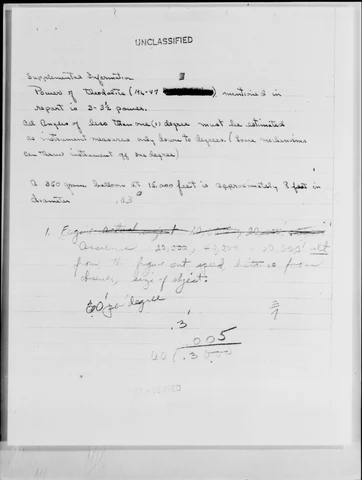 UNCLASSIFIED
Supplemental Information
Power of Theodolite (ML-47 ) mentioned in
report is 2-3½ power.
All Angles of less than one (1) degree must be estimated
as instrument measures only down to degrees. (Some mechanisms
can thrus instrument of one degree)
A 350 gram balloon at 15,000 feet is approximately 8 feet in
diameter
.03°
1. Figure actual 10,000, 20,000
Assume 10,000, 20,000 alt
from this figure out speed distance from
observer, size of object.
60' for degree
.3'
.005
60 ( .3000